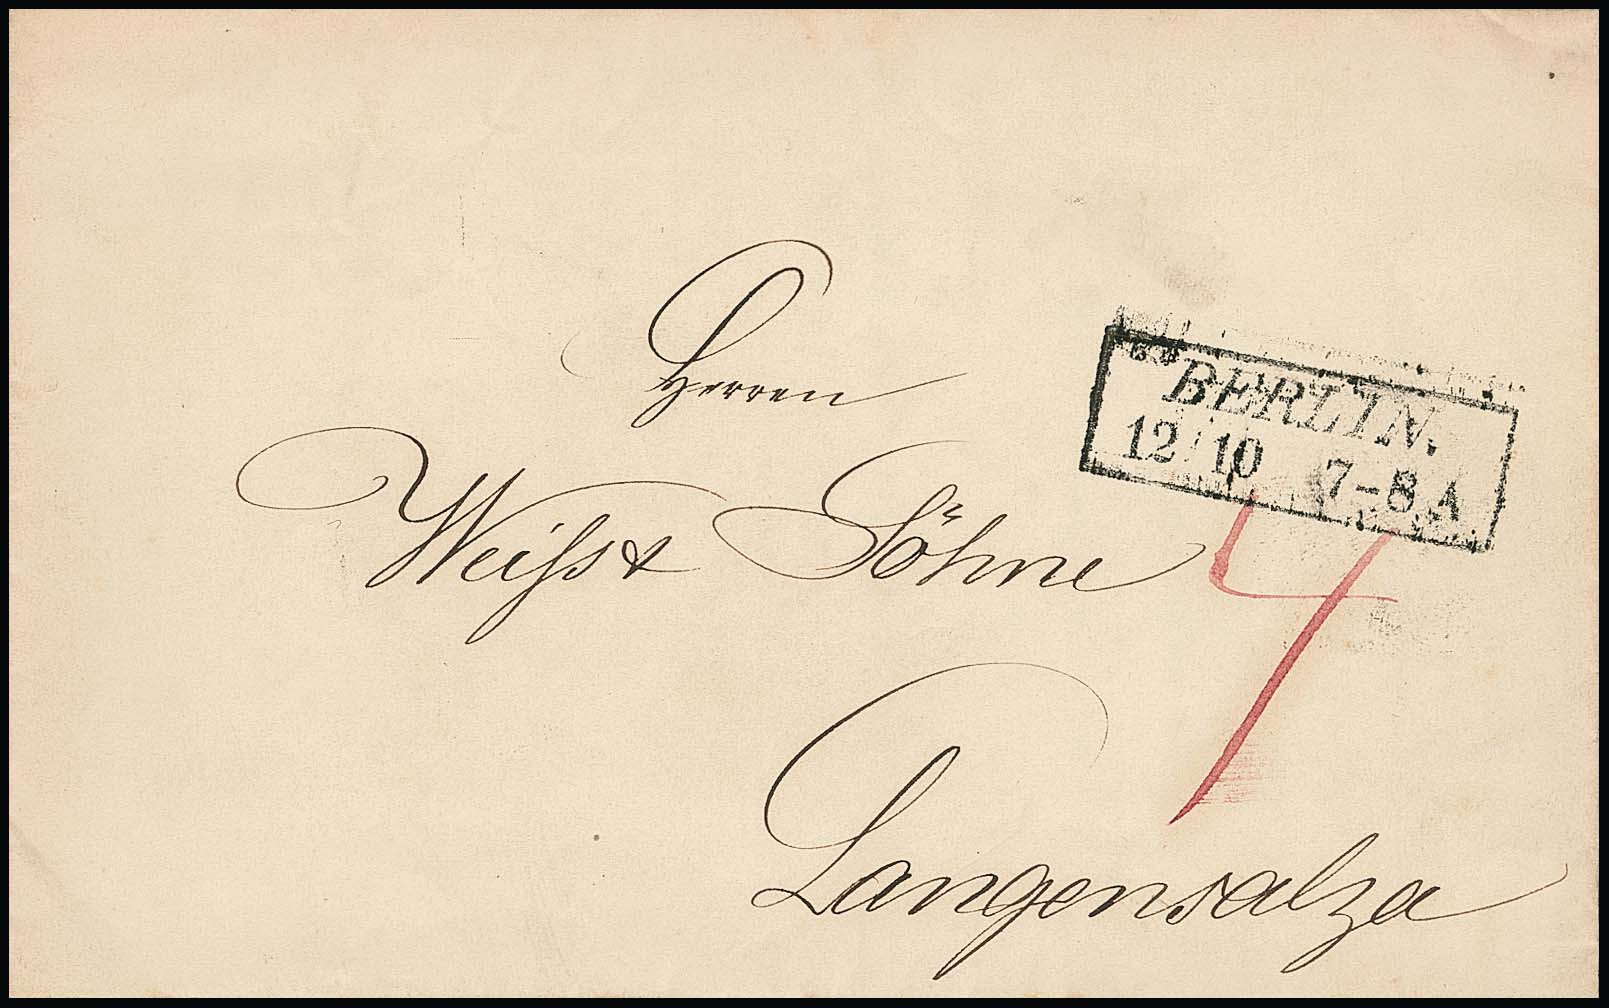 Herren
Weiss & Söhne
Langensalza
BERLIN.
12/10 7-8 A
4